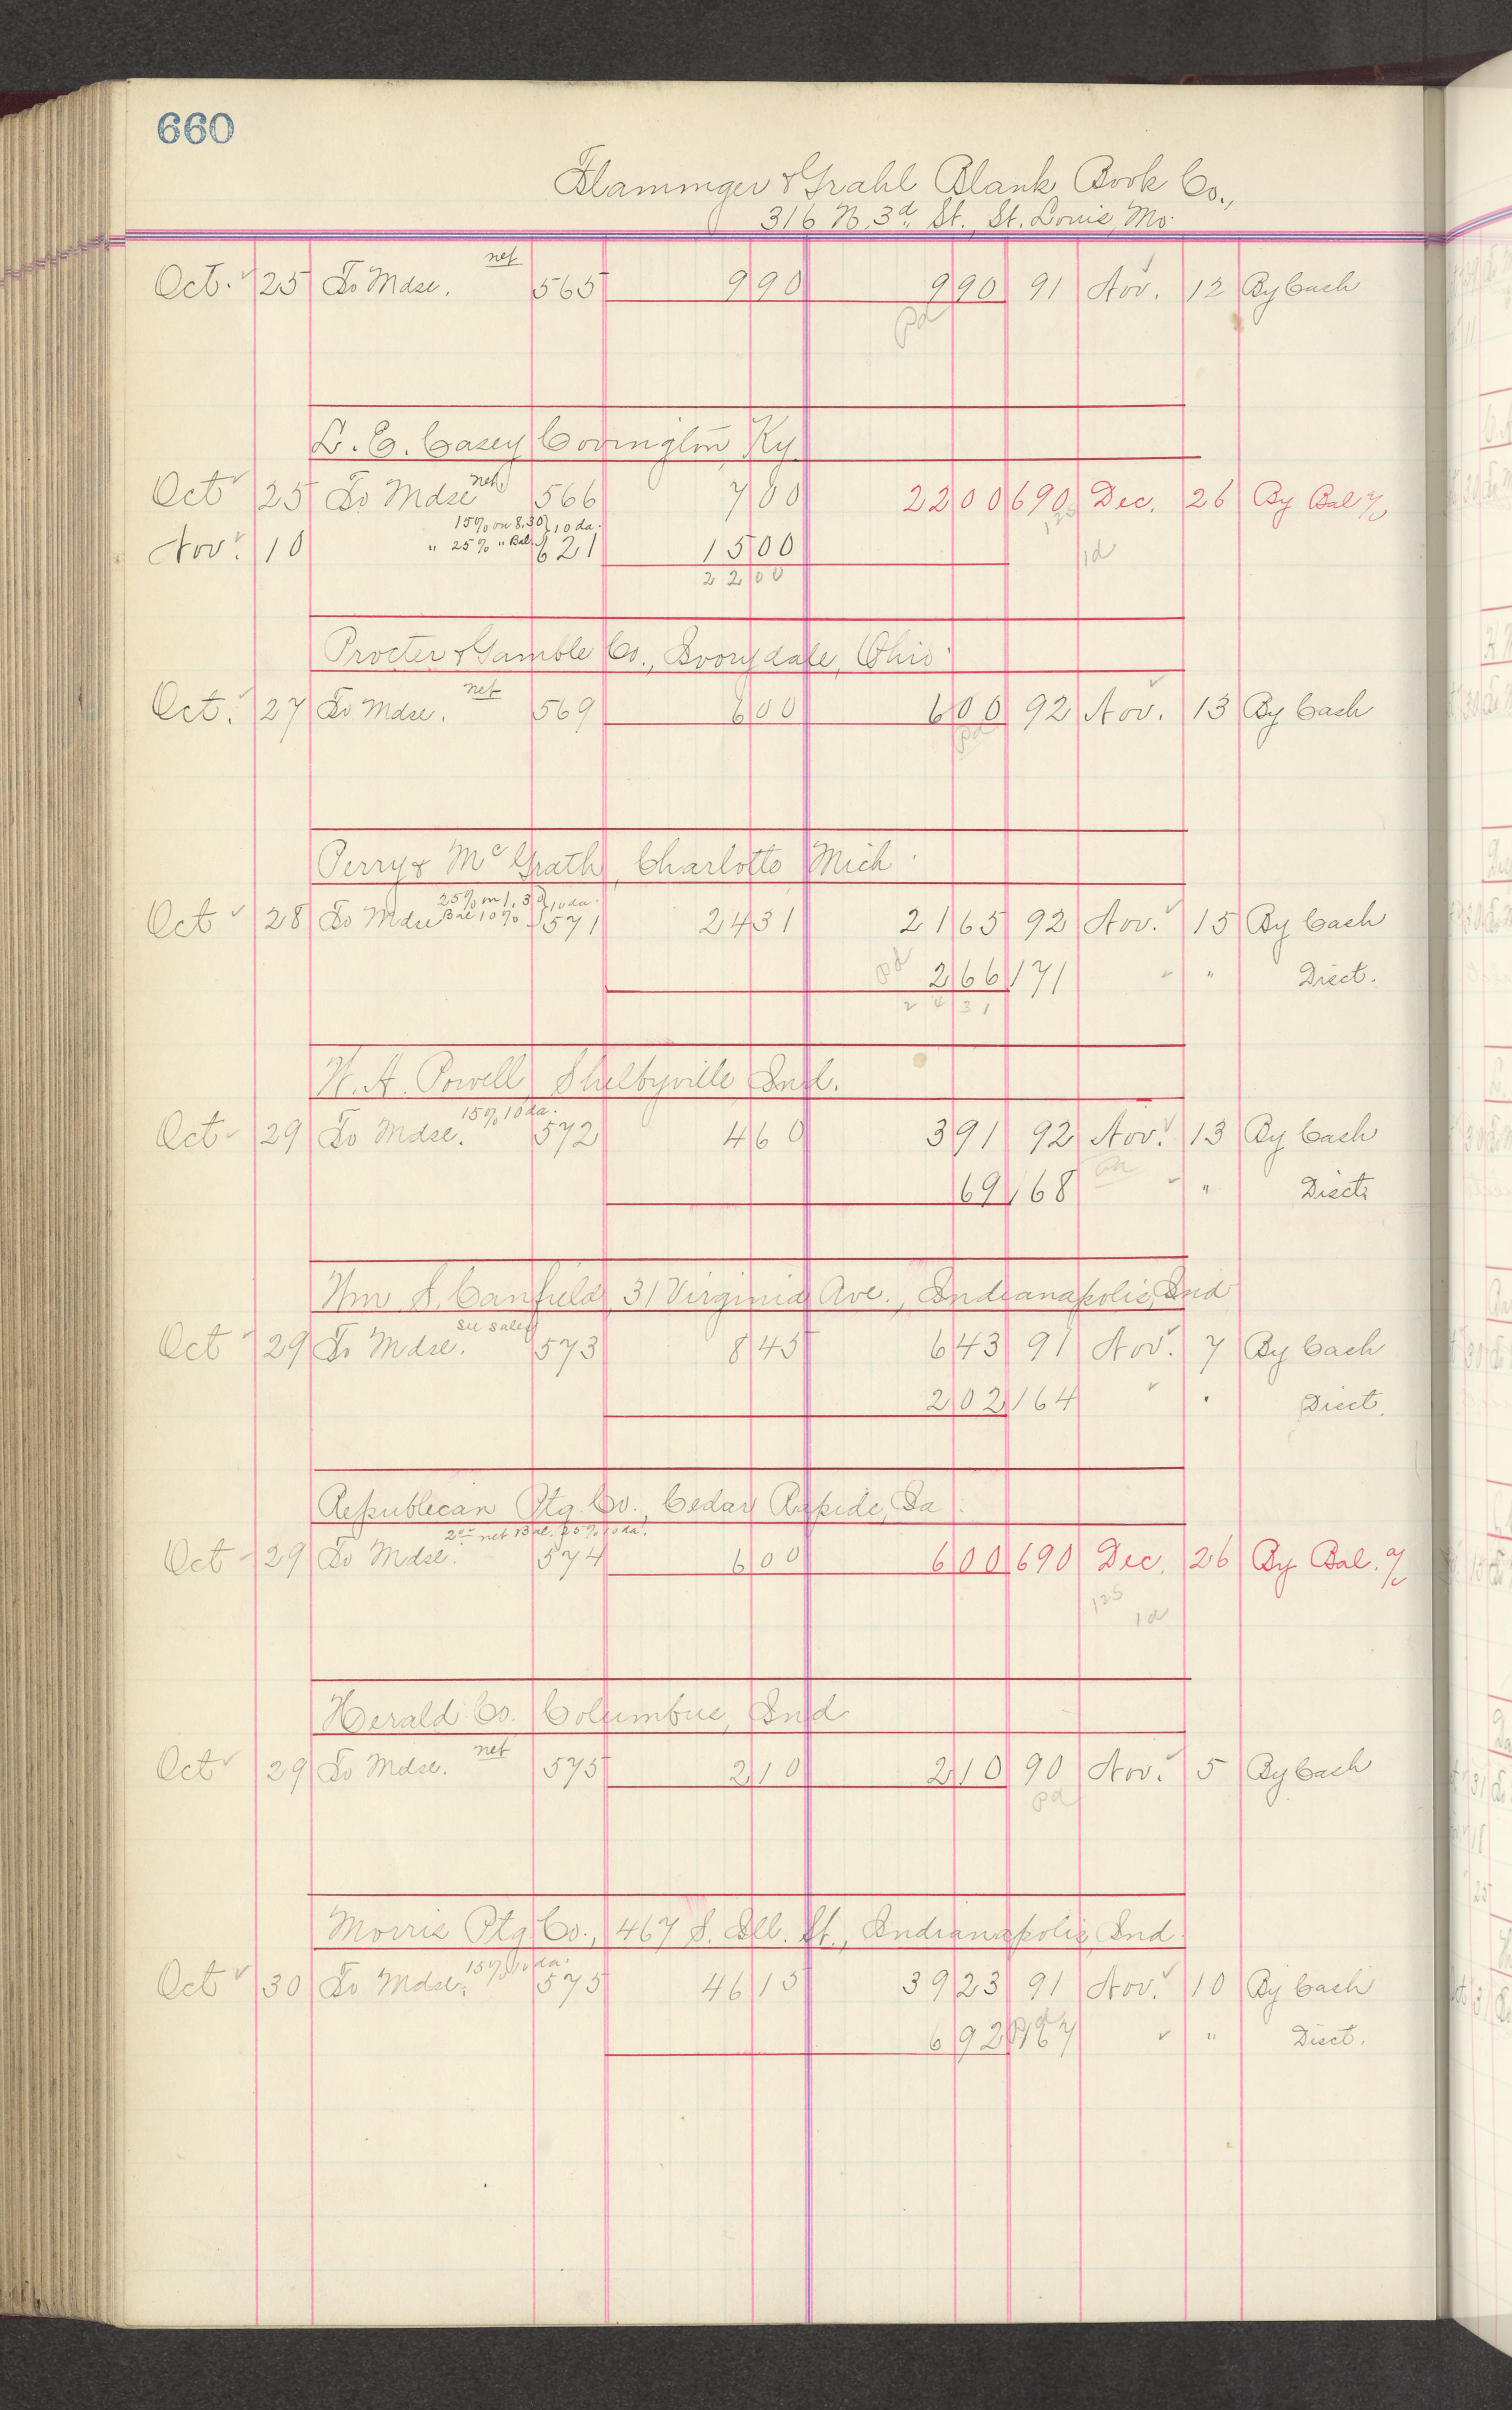 660
Flammger & Grahl Blank Book Co.,
316 N. 3d St., St. Louis, Mo.
net
Oct. 25 To Mdse. 565 9 90 9 90 91 Nov. 12 By Cash
Pd
L. E. Casey Covington, Ky
net
Oct 25 To Mdse 566 7 00 22 00 690 Dec. 26 By Bal a/c
125
15% on 8.30 } 10 da.
Nov. 10 " 25% " Bal. } 621 15 00 1d
22 00
Procter & Gamble Co., Ivorydale, Ohio
net
Oct. 27 To Mdse. 569 6 00 6 00 92 Nov. 13 By Cash
Pd
Perry & McGrath, Charlotte Mich.
25% on 1.30 } 10 da.
Oct 28 To Mdse Bal 10% } 571 24 31 21 65 92 Nov. 15 By Cash
Pd 2 66 171 " " Disct.
24 31
W. A. Powell, Shelbyville Ind.
15% 10 da.
Oct 29 To Mdse. 572 4 60 3 91 92 Nov. 13 By Cash
69 168 " " Disct.
Wm S. Canfield, 31 Virginia Ave., Indianapolis, Ind
see sales
Oct 29 To Mdse. 573 8 45 6 43 91 Nov. 7 By Cash
2 02 164 " " Disct.
Republican Ptg Co., Cedar Rapids, Ia.
2.00 net Bal. 25% 10 da.
Oct 29 To Mdse. 574 6 00 6 00 690 Dec. 26 By Bal. a/c
125
1d
Herald Co. Columbus, Ind
net
Oct 29 To Mdse. 575 2 10 2 10 90 Nov. 5 By Cash
Pd
Morris Ptg Co., 467 S. Ill. St., Indianapolis, Ind.
15% 10 da.
Oct 30 To Mdse. 575 46 15 39 23 91 Nov. 10 By Cash
6 92 167 " " Disct.